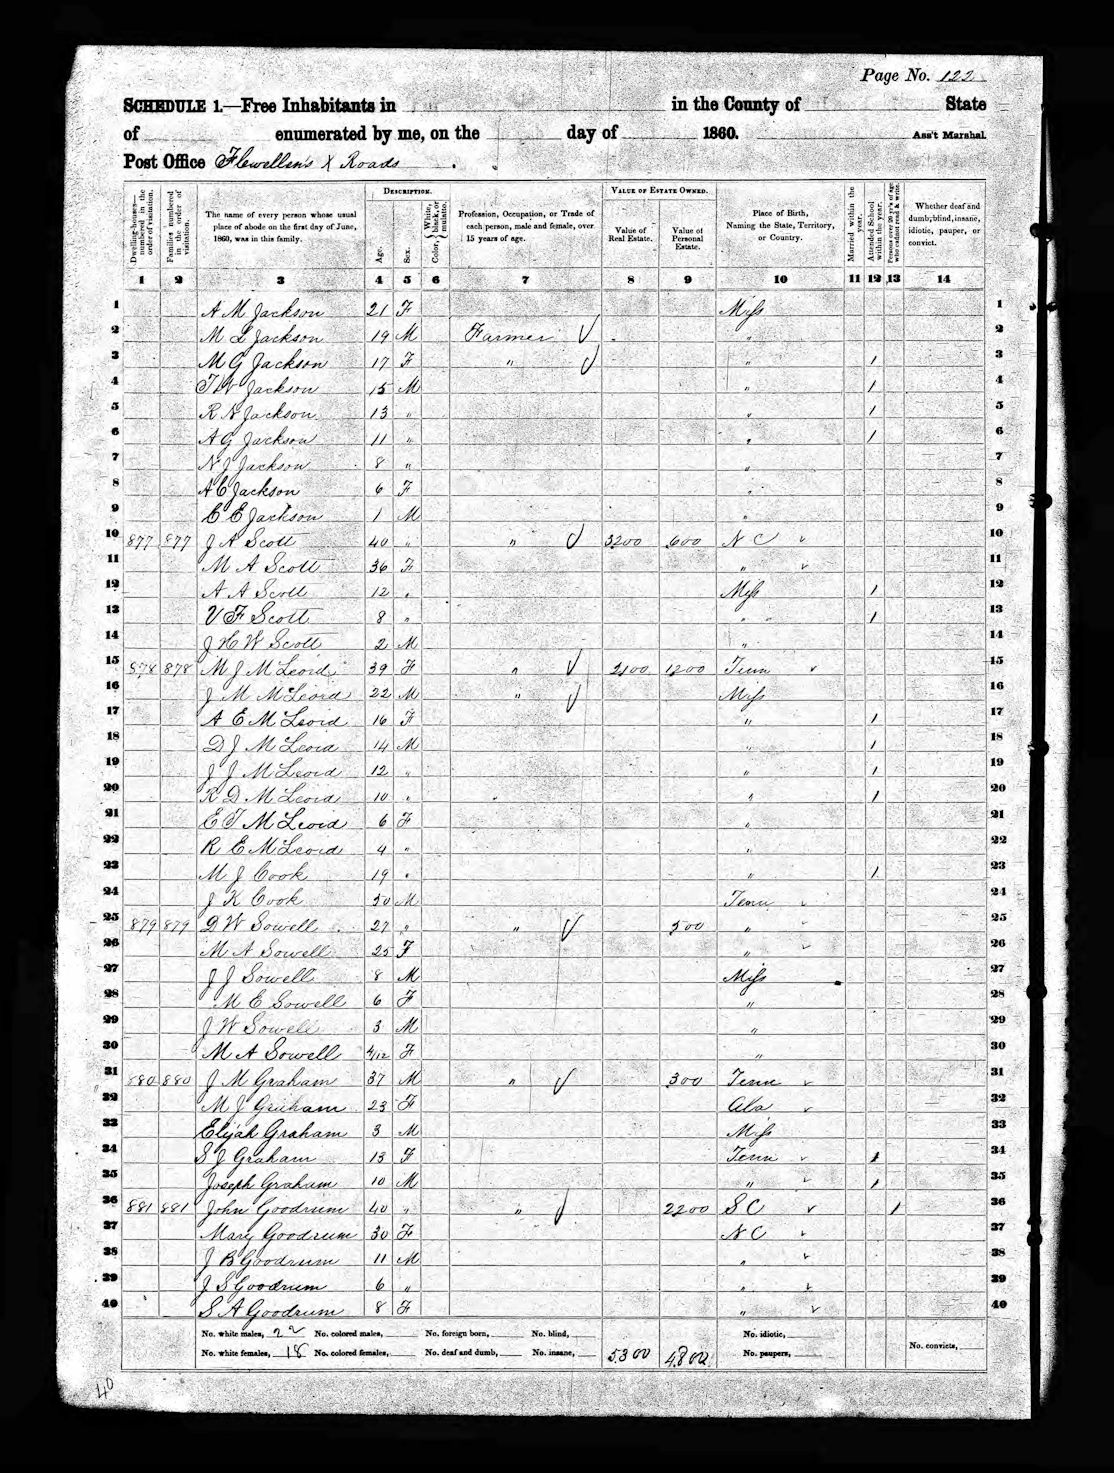 Page No. 122
SCHEDULE 1.—Free Inhabitants in in the County of State
of enumerated by me, on the day of 1860. Ass't Marshal.
Post Office Flewellen's X Roads
Dwelling-houses—numbered in the order of visitation.
Families numbered in the order of visitation.
The name of every person whose usual place of abode on the first day of June, 1860, was in this family.
DESCRIPTION.
Age.
Sex.
Color, White, black, or mulatto.
Profession, Occupation, or Trade of each person, male and female, over 15 years of age.
VALUE OF ESTATE OWNED.
Value of Real Estate.
Value of Personal Estate.
Place of Birth, Naming the State, Territory, or Country.
Married within the year.
Attended School within the year.
Persons over 20 y'rs of age who cannot read & write.
Whether deaf and dumb, blind, insane, idiotic, pauper, or convict.
1 2 3 4 5 6 7 8 9 10 11 12 13 14
1 A M Jackson 21 F Miss 1
2 M L Jackson 19 M Farmer " 2
3 M G Jackson 17 F " " / 3
4 T W Jackson 15 M " / 4
5 R N Jackson 13 " " / 5
6 A G Jackson 11 " " / 6
7 N J Jackson 8 " " 7
8 A C Jackson 6 F " 8
9 C E Jackson 1 M " 9
10 877 877 J A Scott 40 " " 3200 600 N C 10
11 M A Scott 36 F " 11
12 A A Scott 12 " Miss / 12
13 V F Scott 8 " " / 13
14 J H W Scott 2 M " 14
15 878 878 M J McLeoid 39 F " 2100 1200 Tenn 15
16 J M McLeoid 22 M " Miss 16
17 A E McLeoid 16 F " / 17
18 D J McLeoid 14 M " / 18
19 J J McLeoid 12 " " / 19
20 K D McLeoid 10 " " / 20
21 E T McLeoid 6 F " 21
22 R E McLeoid 4 " " 22
23 M J Cook 19 " " / 23
24 J K Cook 50 M Tenn 24
25 879 879 D W Sowell 27 " " 500 " 25
26 M A Sowell 25 F " 26
27 J J Sowell 8 M Miss 27
28 M E Sowell 6 F " 28
29 J W Sowell 3 M " 29
30 M A Sowell 4/12 F " 30
31 880 880 J M Graham 37 M " 300 Tenn 31
32 M J Graham 23 F Ala 32
33 Elijah Graham 3 M Miss 33
34 S J Graham 13 F Tenn / 34
35 Joseph Graham 10 M " / 35
36 881 881 John Goodrum 40 " " 2200 S C / 36
37 Mary Goodrum 30 F N C 37
38 J B Goodrum 11 M " 38
39 J S Goodrum 6 " " 39
40 S A Goodrum 8 F " 40
No. white males, 22 No. colored males, No. foreign born, No. blind, No. idiotic,
No. white females, 18 No. colored females, No. deaf and dumb, No. insane, 5300 4800 No. paupers, No. convicts,
40